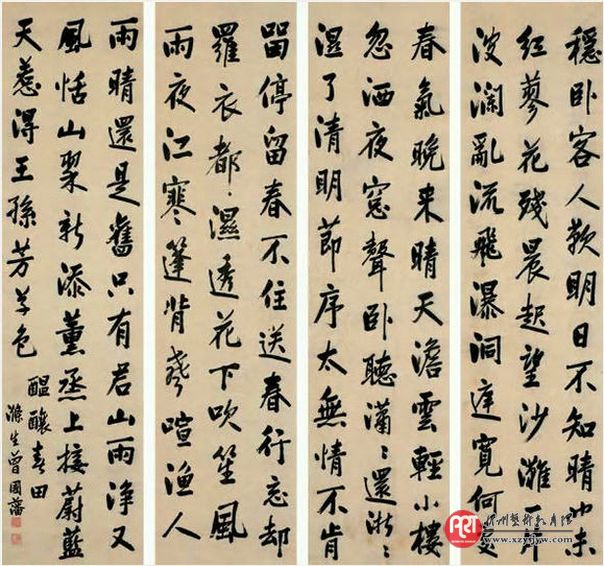 穩卧客人歎明日不知晴也未
红蓼花殘晨起望沙灘一片
波瀾亂流飛瀑洞庭寬何處
春氣晚来晴天澹雲輕小樓
忽洒夜窓聲卧聽瀟〻還淅〻
濕了清明節序太無情不肯
畱停留春不住送春行忘却
羅衣都濕透花下吹笙風
雨夜江寒篷背聲喧渔人
雨晴還是舊只有君山雨淨又
風恬山翠新添薰烝上接蔚藍
天惹得王孫芳草色
醖釀春田
滌生曾國藩
ART
www.xzysjyw.com